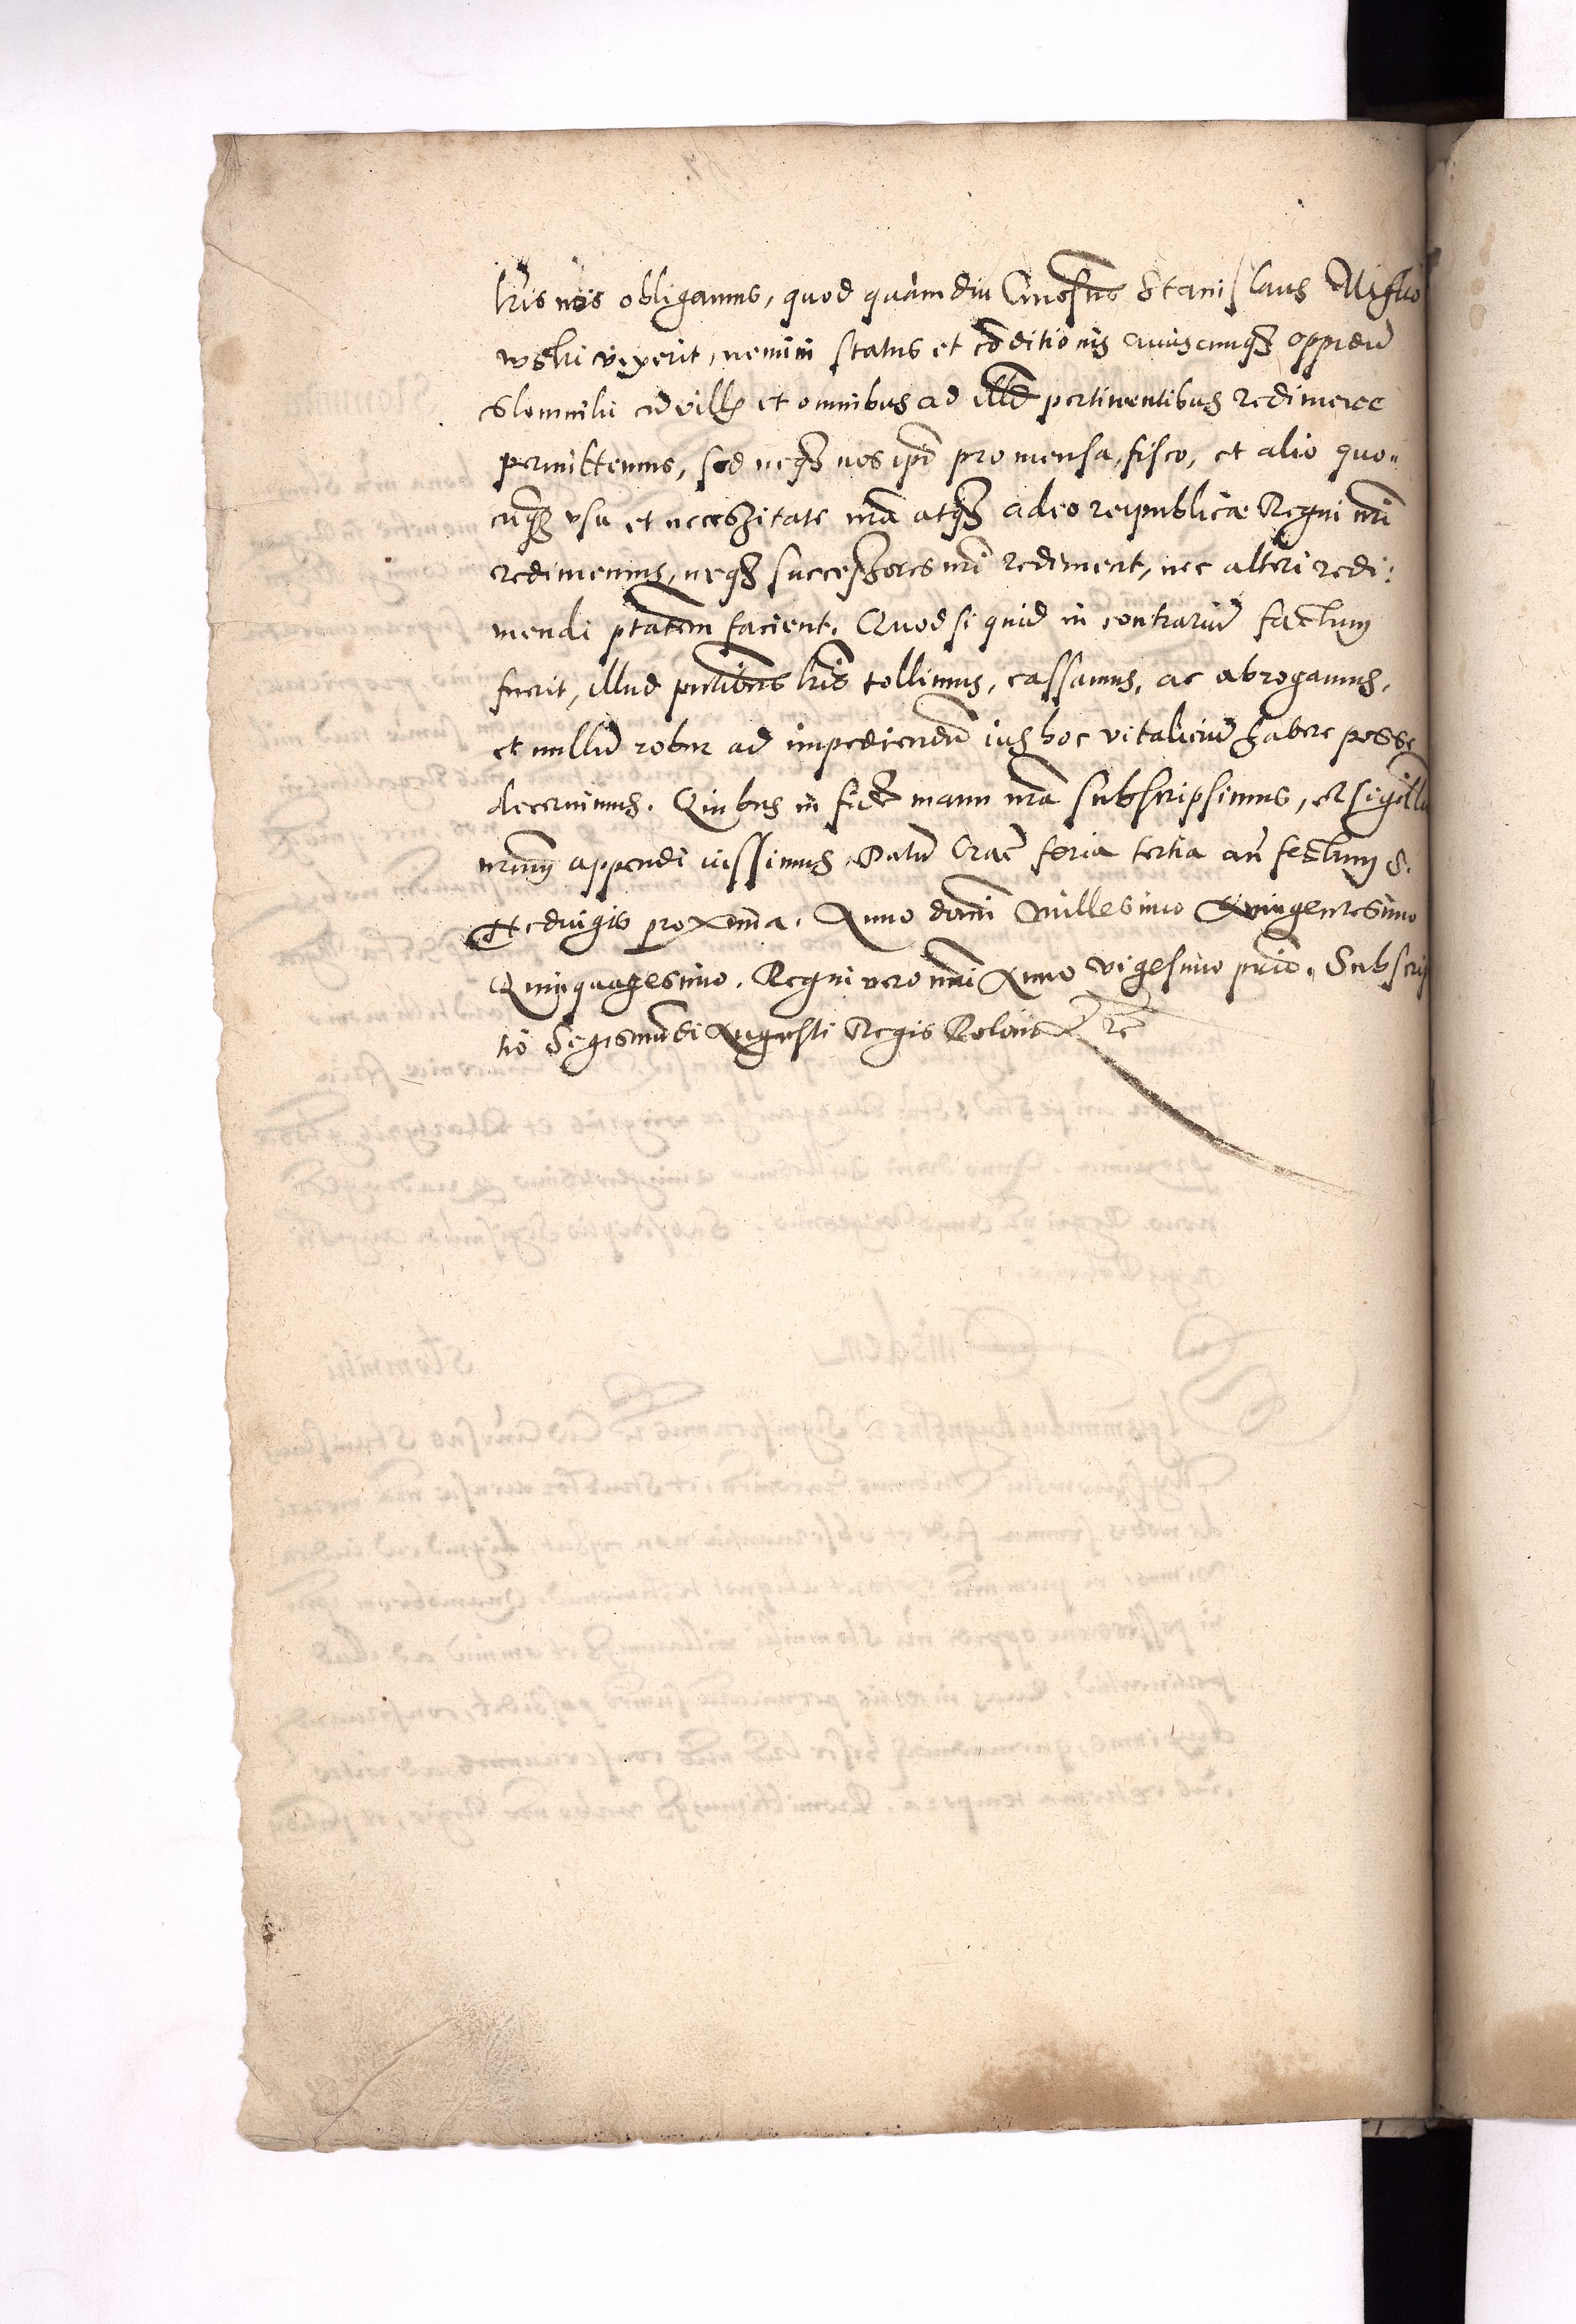 lr̃is nr̃is obligamus, quod quàmdiu Gñosus Stanislaus Mÿsko
wski vixerit, nemini status et cõditionis cuiuscunqз oppidũ
Slomniki cũ villis et omnibus ad illud pertinentibus redimere
permittemus, sed neqз nos ipsi pro mensa, fisco, et alio quo-
cũqз vsu et necessitate nr̃a atqз adeo reipublicæ Regni nr̃i
redimemus, neqз successores nr̃i redimēt, nec alteri redi:
mendi ptãtem facient. Quod si quid in contrariũ factum
fuerit, illud pñtibus lr̃is tollimus, cassamus, ac abrogamus,
et nullũ robur ad impediendũ ius hoc vitaliciũ habere posse
decernimus. Quibus in fidẽ manu nr̃a subscripsimus, et sigillũ
nr̃um appendi iussimus. Datũ Crac̃ feria tertia añ festum S.
Hedvigis proxima. Anno domĩ Millesimo Quingentesimo
Quinquagesimo. Regni vero nr̃i Anno vigesimo primo. Subscrip
tio Sigismũdi Augusti Regis Poloniæ etc̃